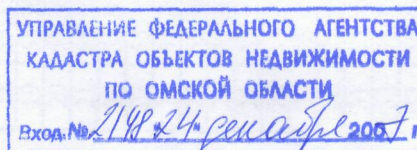 УПРАВЛЕНИЕ ФЕДЕРАЛЬНОГО АГЕНТСТВА
КАДАСТРА ОБЪЕКТОВ НЕДВИЖИМОСТИ
ПО ОМСКОЙ ОБЛАСТИ
Вход. № 2198 "24" декабря 2007 г